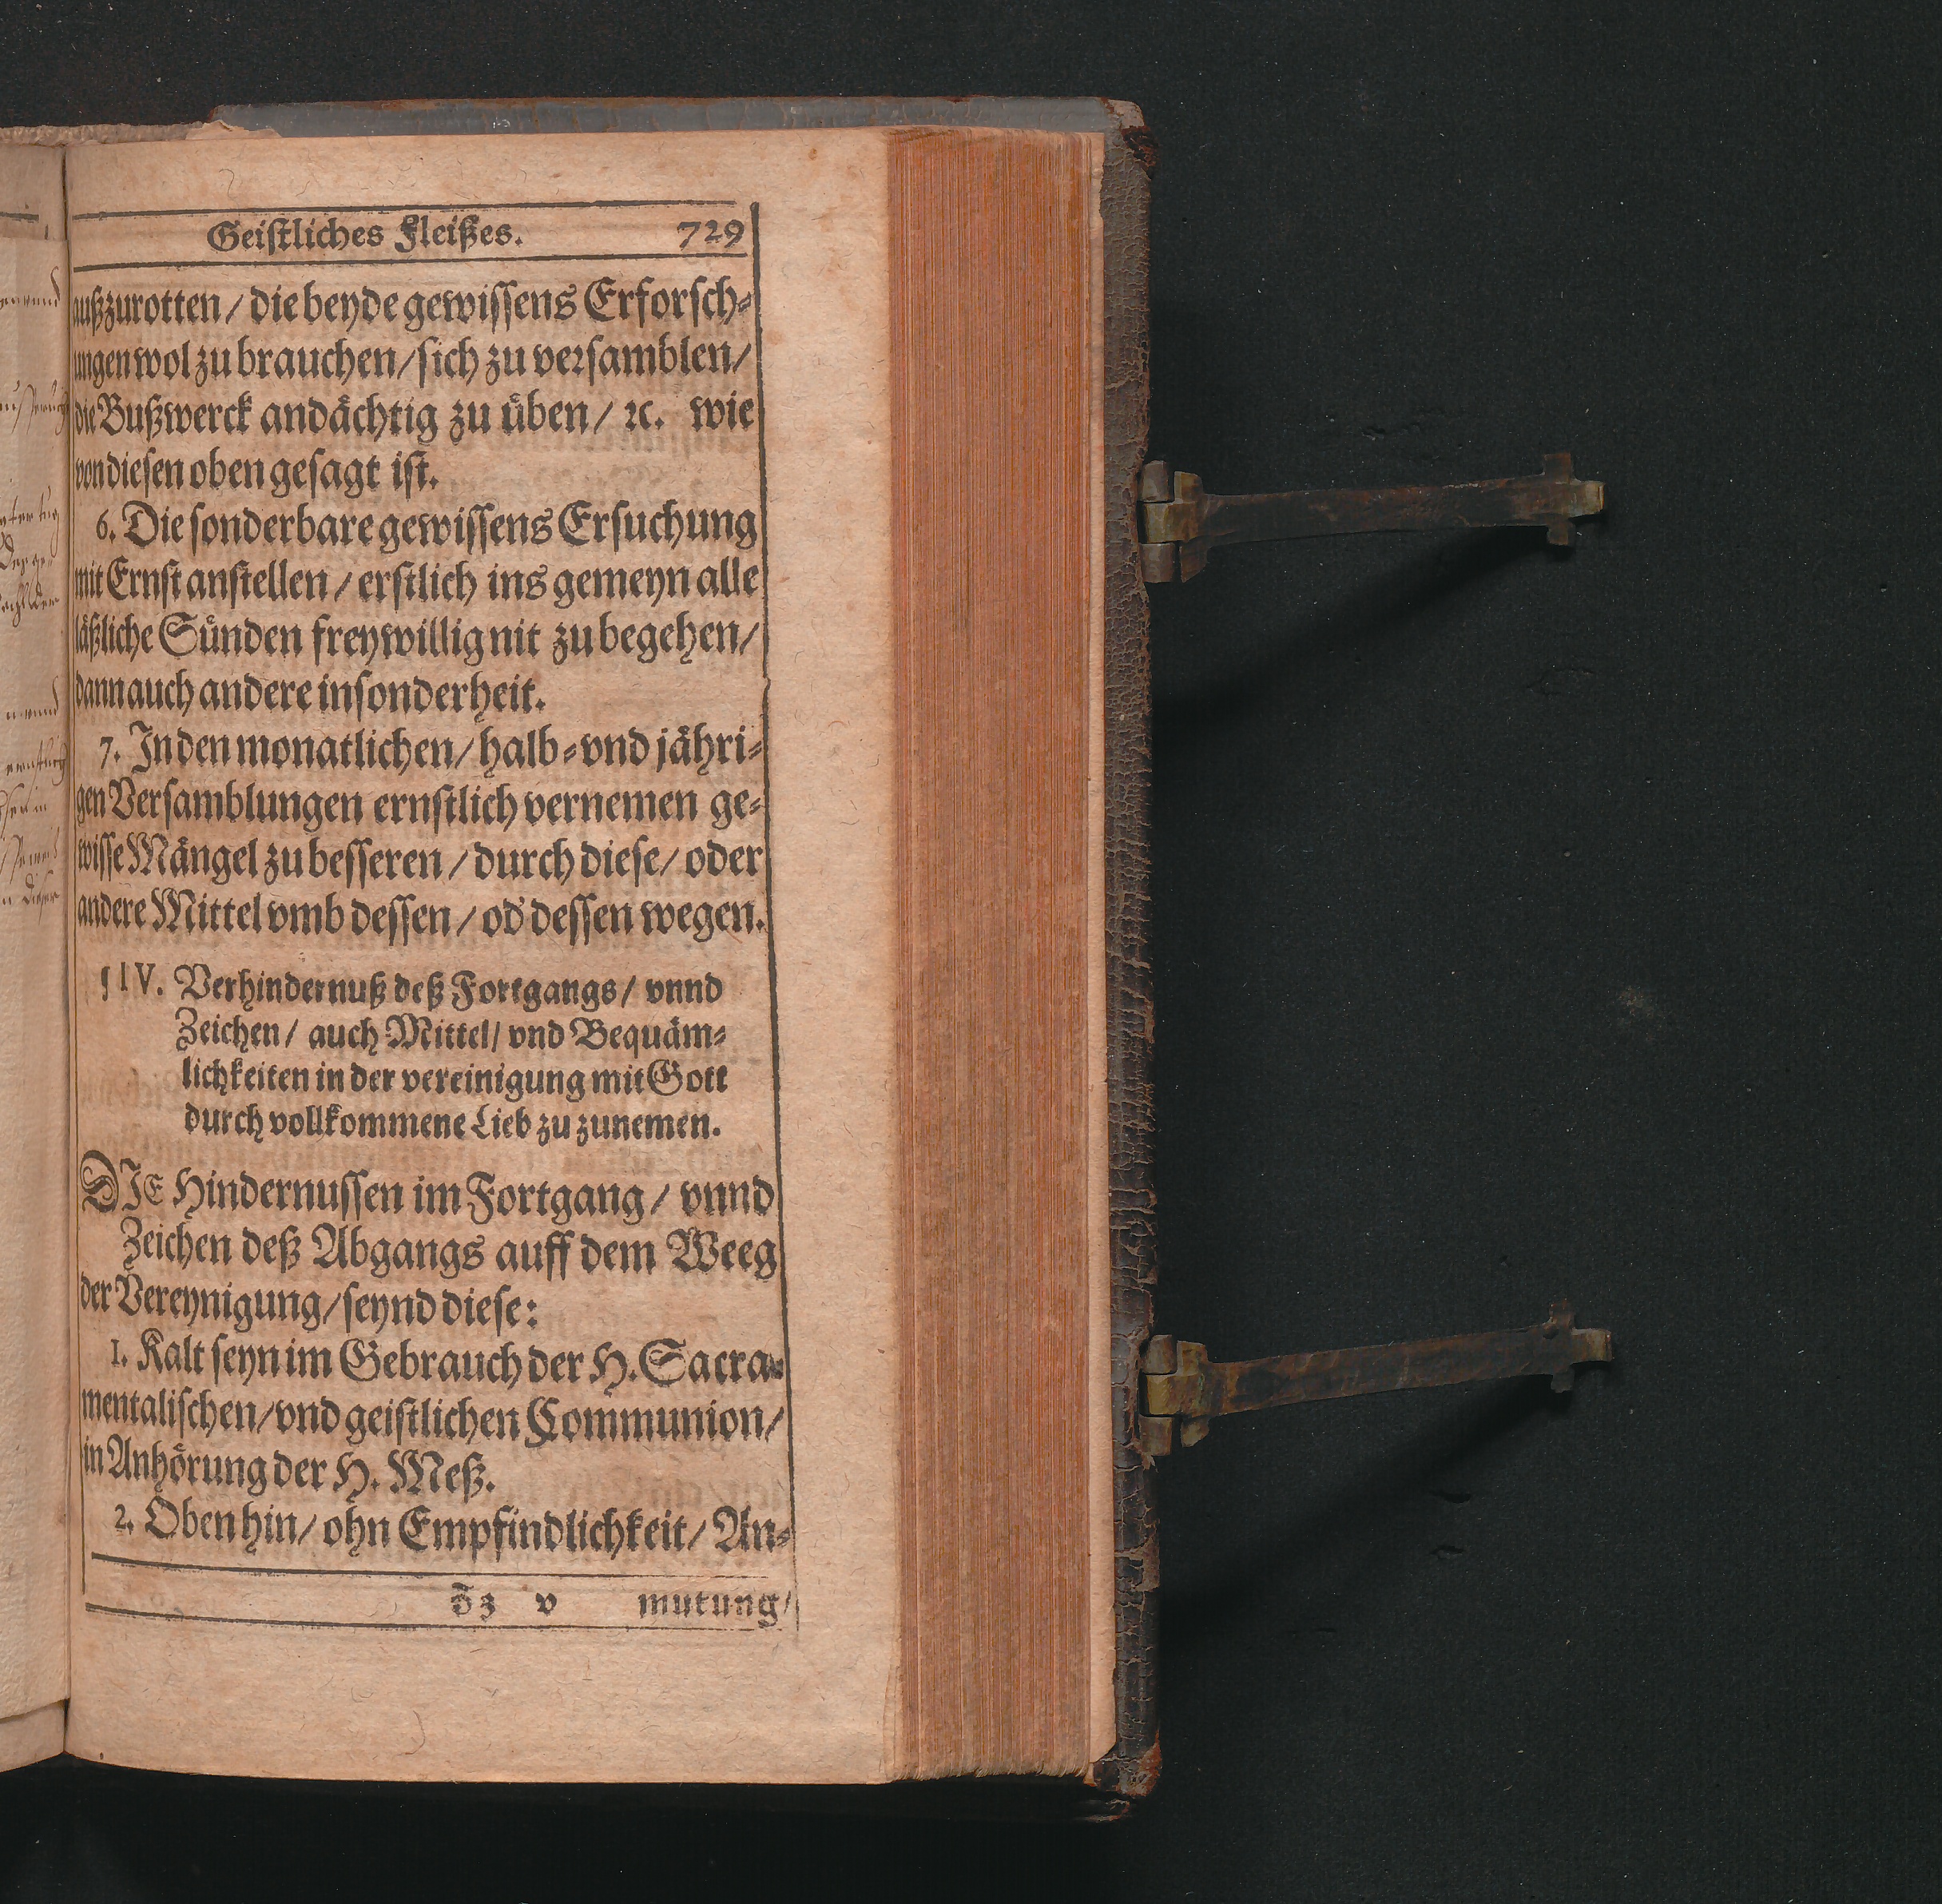 Geistliches Fleißes. 729
außzurotten / die beyde gewissens Erforsch-
ungen wol zu brauchen / sich zu versamblen /
die Bußwerck andächtig zu üben / ꝛc. wie
von diesen oben gesagt ist.
6. Die sonderbare gewissens Ersuchung
mit Ernst anstellen / erstlich ins gemeyn alle
läßliche Sünden freywillig nit zu begehen /
dann auch andere insonderheit.
7. In den monatlichen / halb- vnd jähri-
gen Versamblungen ernstlich vernemen ge-
wisse Mängel zu besseren / durch diese / oder
andere Mittel vmb dessen / od' dessen wegen.
¶ IV. Verhindernuß deß Fortgangs / vnnd
Zeichen / auch Mittel / vnd Bequäm-
lichkeiten in der vereinigung mit Gott
durch vollkommene Lieb zu zunemen.
DIE Hindernussen im Fortgang / vnnd
Zeichen deß Abgangs auff dem Weeg
der Vereynigung / seynd diese:
1. Kalt seyn im Gebrauch der H. Sacra-
mentalischen / vnd geistlichen Communion /
in Anhörung der H. Meß.
2. Oben hin / ohn Empfindlichkeit / An-
Zz v mutung /